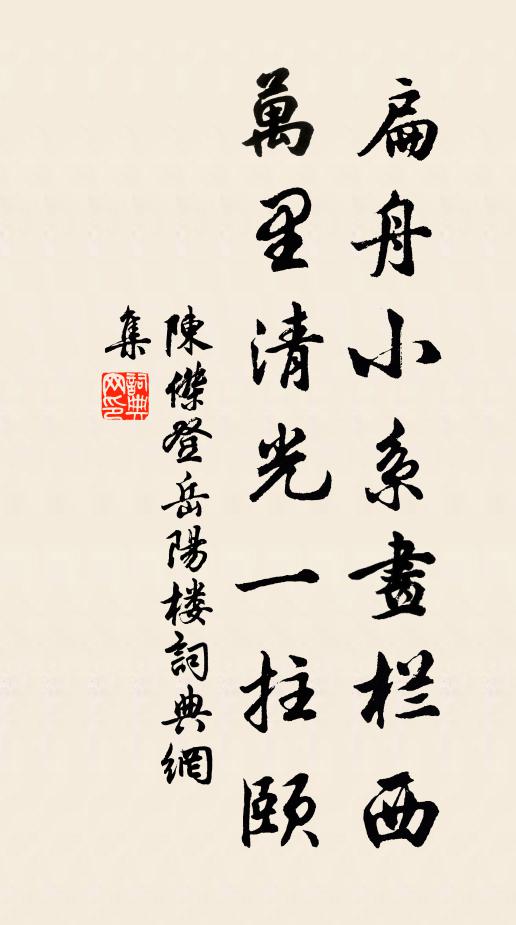 扁舟小系畫栏西
萬里清光一拄頤
陳傑登岳陽楼詞典網
集
詞典网印